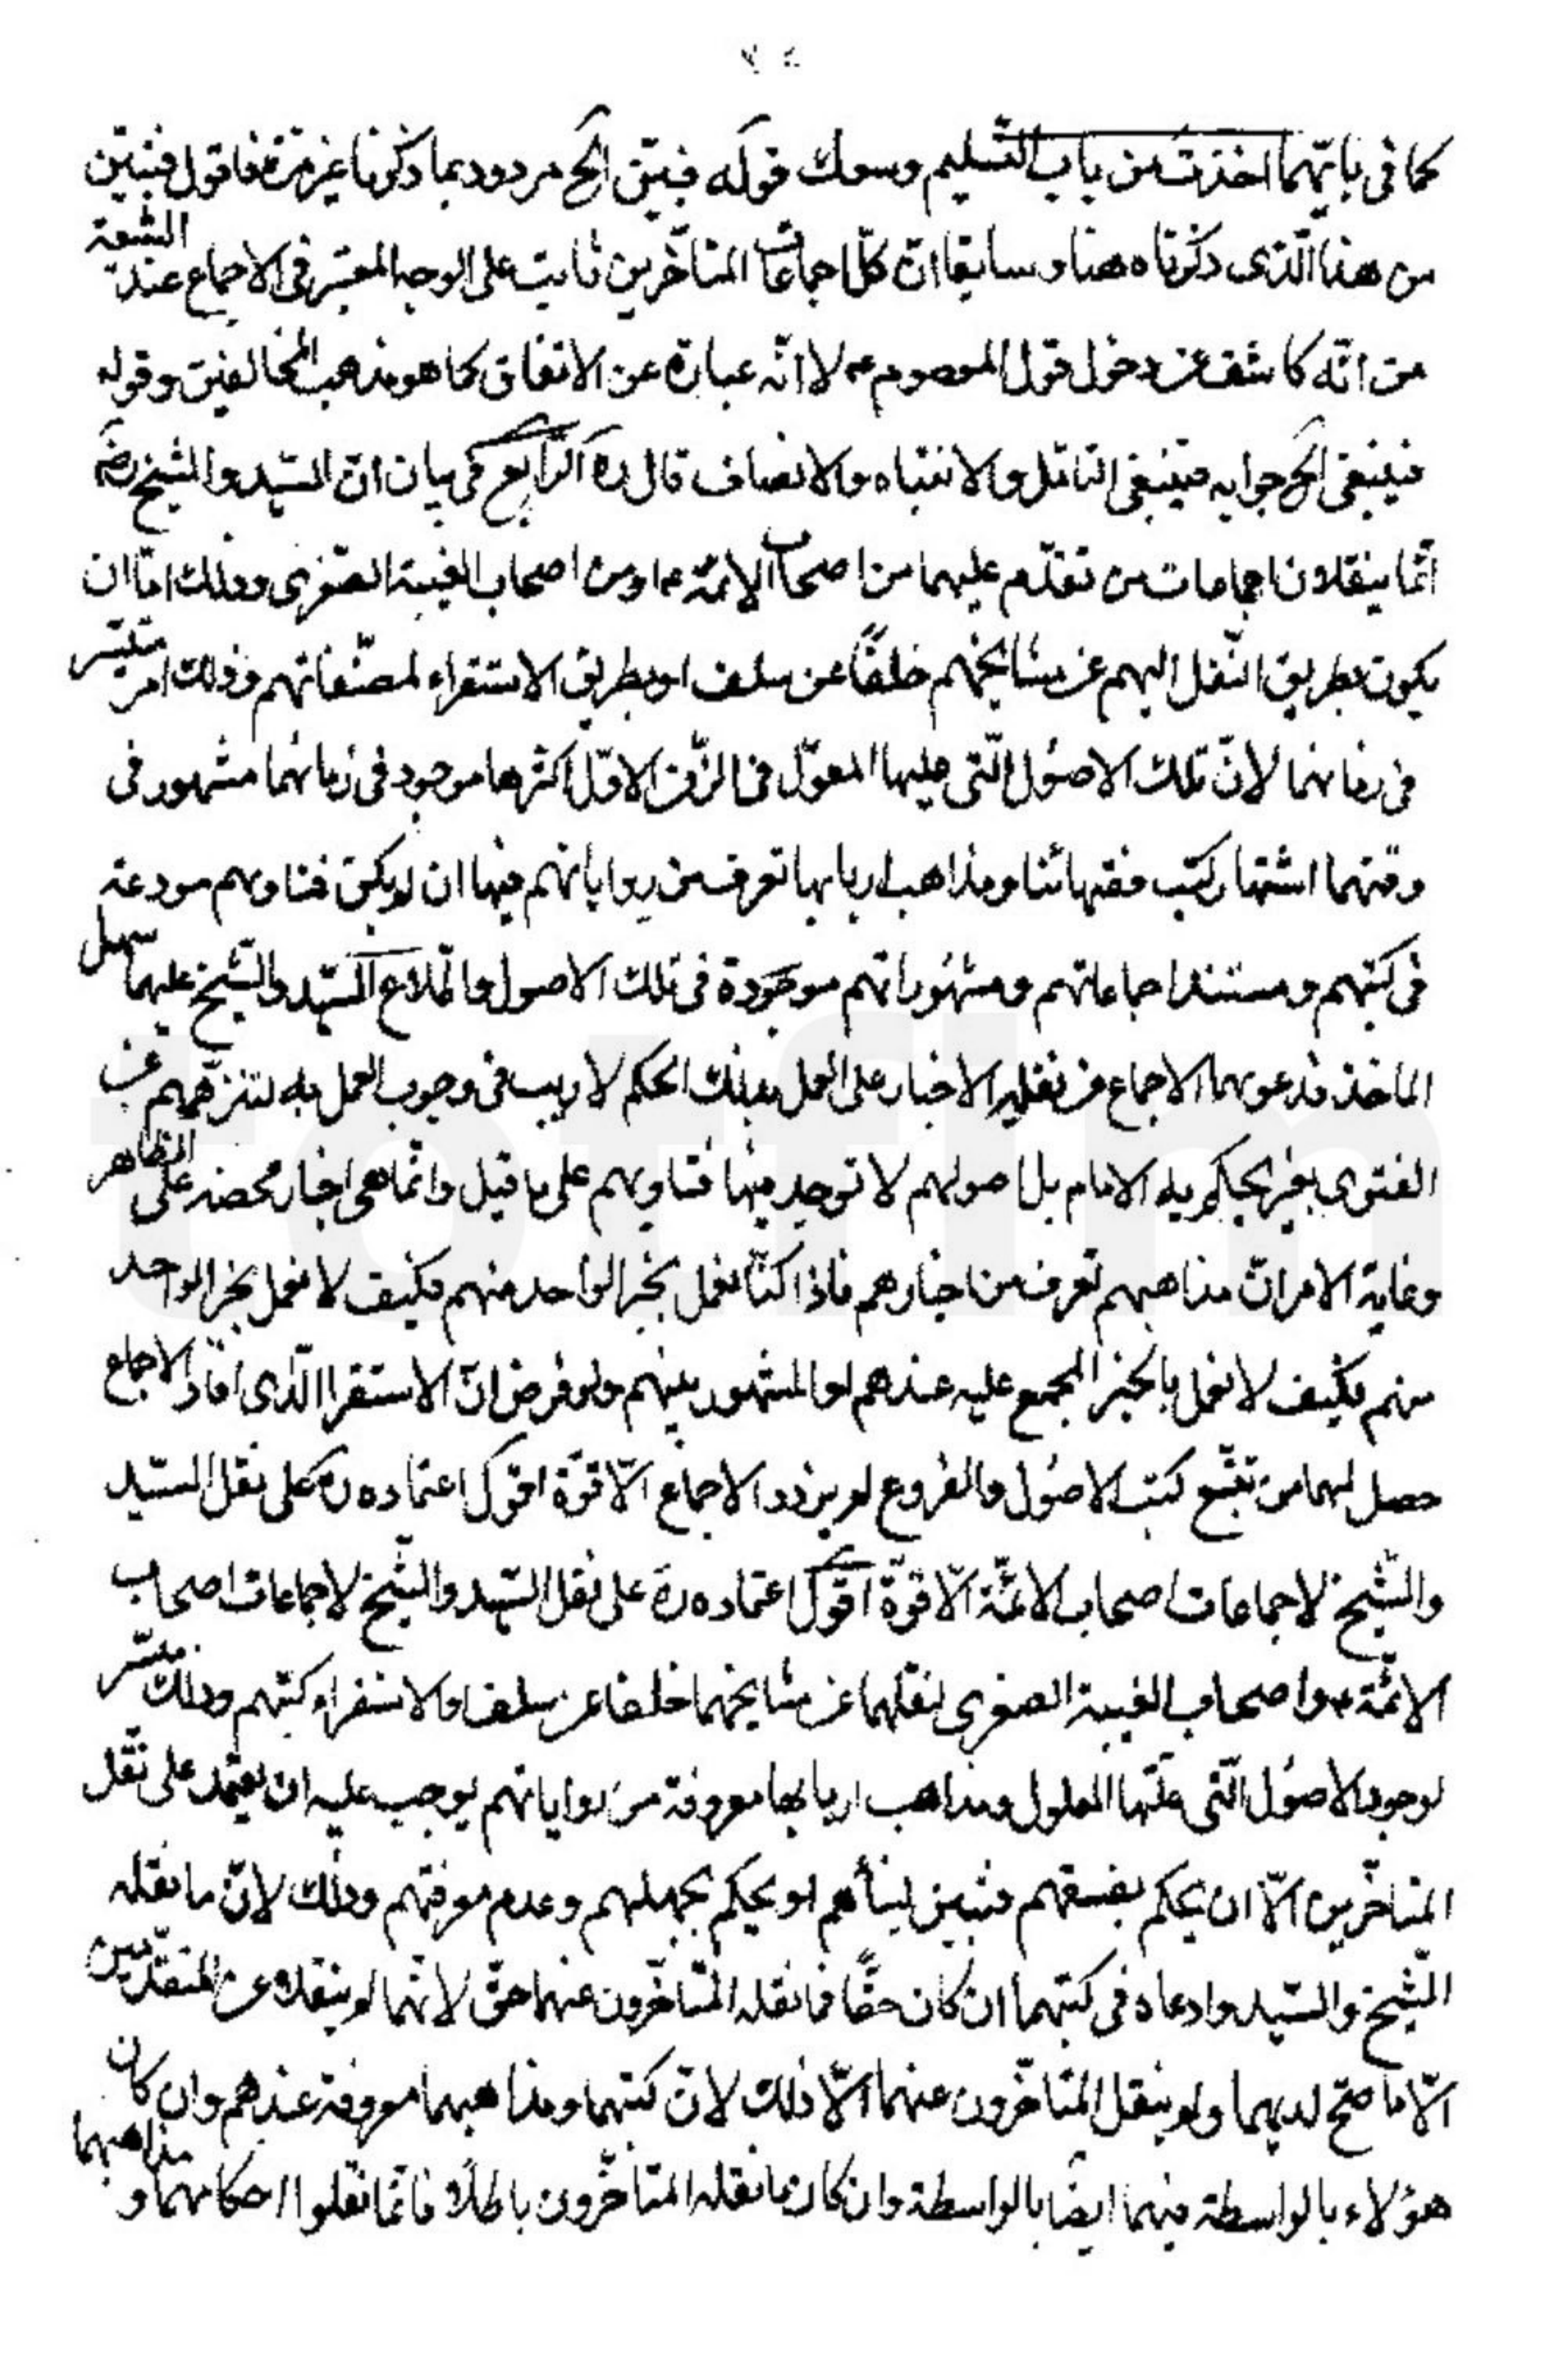 كما فى بابتهما اخذت من باب التسليم وسوك قوله فبيّن الخ مردود بما ذكرنا غير مرّة فاقول فتبيّن
من هذا الّذى ذكرناه هنا و سابقا انّ كلّ اجماعات المتأخّرين ثابت على الوجه المعتبر فى الاجماع عند الشيعة
من انّه كاشف عن دخول قول المعصوم ع لا انّه عبارة عن الاتفاق كما هو مذهب المخالفين و قوله
فينبغى الخ جوابه فينبغى التامّل و الانتباه و الانصاف قال ره الرّابع فى بيان انّ السّيد و الشيخ رض
انّما ينقلان اجماعات من تقدّم عليهما من اصحاب الائمّة ع او من اصحاب الغيبة الصّغرى و ذلك امّا ان
يكون بطريق النّقل اليهم عن مشايخهم خلفًا عن سلف او بطريق الاستقراء لمصنّفاتهم و ذلك امر متيسّر
فى زمانهما لانّ تلك الاصُول الّتى عليها المعوّل فى الزّمن الاوّل اكثرها موجود فى زمانهما مشهور فى
وقتهما اشتهار كتب فقهائنا و مذاهب اربابها تعرف من رواياتهم فيها ان لم يكن فتاويهم مودعة
فى كتبهم و مستند اجماعاتهم و مشهُوراتهم موجودة فى تلك الاصول و اطّلاع السّيد و الشّيخ عليها سهل
الماخذ فدعويهما الاجماع من نقله الاخبار على العمل بذلك الحكم لا ريب فى وجوب العمل به لتنزّههم عن
الفتوى بغير ما يحكم به الامام بل اصولهم لا توجد فيها فتاويهم على ما قيل و انّما هى اخبار محضة على الظاهر
و غاية الامر انّ مذاهبهم تعرف من اخبارهم فاذا كنّا نعمل بخبر الواحد منهم فكيف لا نعمل بخبر الواحد
منهم فكيف لا نعمل بالخبر المجمع عليه عندهم او المشهور بينهم و لو فرض انّ الاستقرا الّذى افاد الاجماع
حصل لهما من تتبّع كتب الاصُول و الفروع لم يزدد الاجماع الّا قوّة اقول اعتماده ره على نقل السّيد
والشّيخ لاجماعات اصحاب الائمّة الّا قوّة اقول اعتماده ره على نقل السّيد و الشّيخ لاجماعات اصحاب
الائمّة ع و اصحاب الغيبة الصغرى لنقلهما عن مشايخهما خلفا عن سلف و لاستقراء كتبهم و ذلك متيسّر
لوجود الاصُول الّتى عليها المعلول و مذاهب اربابها معروفة من رواياتهم يوجب عليه ان يعتمد على نقل
المتاخّرين الّا ان يحكم بفسقهم فتبيّن لنبأهم او يحكم بجهلهم و عدم معرفتهم و ذلك لانّ ما نقله
الشّيخ و السّيد و ادعاه فى كتبهما ان كان حقّا فما نقله المتاخّرون عنهما حقّ لانّهما لم ينقلا عن المتقدّمين
الّا ما صحّ لديهما و لم ينقل المتاخّرون عنهما الّا ذلك لانّ كتبهما و مذاهبهما معروفة عندهم و ان كان
هؤلاء بالواسطة فهما ايضًا بالواسطة و ان كان ما نقله المتاخّرون باطلًا فانّما نقلوا احكامهما و مذاهبهما